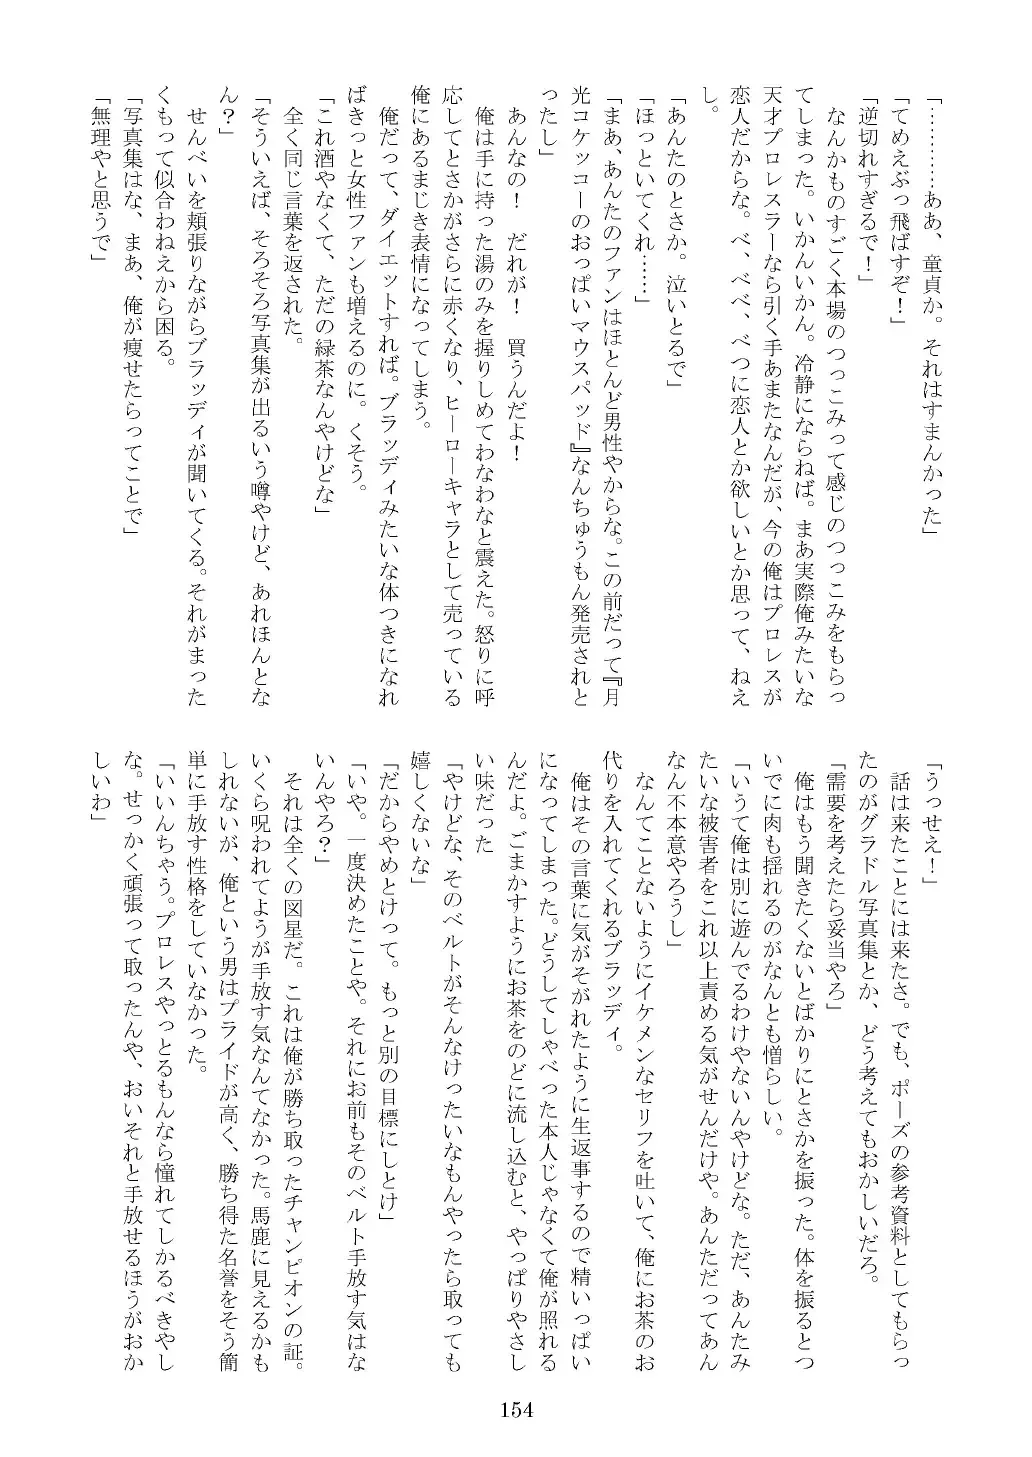 「…………ああ、童貞か。それはすまんかった」
「てめえぶっ飛ばすぞ！」
「逆切れすぎるで！」
　なんかものすごく本場のつっこみって感じのつっこみをもらっ
てしまった。いかんいかん。冷静にならねば。まあ実際俺みたいな
天才プロレスラーなら引く手あまたなんだが、今の俺はプロレスが
恋人だからな。べ、べべ、べつに恋人とか欲しいとか思って、ねえ
し。
「あんたのとさか。泣いとるで」
「ほっといてくれ……」
「まあ、あんたのファンはほとんど男性やからな。この前だって『月
光コケッコーのおっぱいマウスパッド』なんちゅうもん発売されと
ったし」
　あんなの！　だれが！　買うんだよ！
　俺は手に持った湯のみを握りしめてわなわなと震えた。怒りに呼
応してとさかがさらに赤くなり、ヒーローキャラとして売っている
俺にあるまじき表情になってしまう。
　俺だって、ダイエットすれば。ブラッディみたいな体つきになれ
ばきっと女性ファンも増えるのに。くそう。
「これ酒やなくて、ただの緑茶なんやけどな」
　全く同じ言葉を返された。
「そういえば、そろそろ写真集が出るいう噂やけど、あれほんとな
ん？」
　せんべいを頬張りながらブラッディが聞いてくる。それがまった
くもって似合わねえから困る。
「写真集はな、まあ、俺が痩せたらってことで」
「無理やと思うで」
「うっせえ！」
　話は来たことには来たさ。でも、ポーズの参考資料としてもらっ
たのがグラドル写真集とか、どう考えてもおかしいだろ。
「需要を考えたら妥当やろ」
　俺はもう聞きたくないとばかりにとさかを振った。体を振るとつ
いでに肉も揺れるのがなんとも憎らしい。
「いうて俺は別に遊んでるわけやないんやけどな。ただ、あんたみ
たいな被害者をこれ以上責める気がせんだけや。あんただってあん
なん不本意やろうし」
　なんてことないようにイケメンなセリフを吐いて、俺にお茶のお
代りを入れてくれるブラッディ。
　俺はその言葉に気がそがれたように生返事するので精いっぱい
になってしまった。どうしてしゃべった本人じゃなくて俺が照れる
んだよ。ごまかすようにお茶をのどに流し込むと、やっぱりやさし
い味だった
「やけどな、そのベルトがそんなけったいなもんやったら取っても
嬉しくないな」
「だからやめとけって。もっと別の目標にしとけ」
「いや。一度決めたことや。それにお前もそのベルト手放す気はな
いんやろ？」
　それは全くの図星だ。これは俺が勝ち取ったチャンピオンの証。
いくら呪われてようが手放す気なんてなかった。馬鹿に見えるかも
しれないが、俺という男はプライドが高く、勝ち得た名誉をそう簡
単に手放す性格をしていなかった。
「いいんちゃう。プロレスやっとるもんなら憧れてしかるべきやし
な。せっかく頑張って取ったんや、おいそれと手放せるほうがおか
しいわ」
154